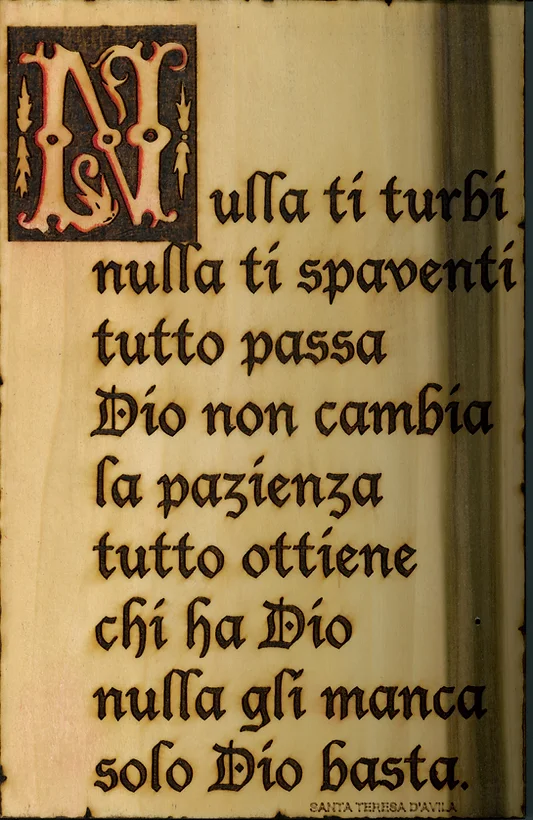 Nulla ti turbi
nulla ti spaventi
tutto passa
Dio non cambia
la pazienza
tutto ottiene
chi ha Dio
nulla gli manca
solo Dio basta.
SANTA TERESA D'AVILA